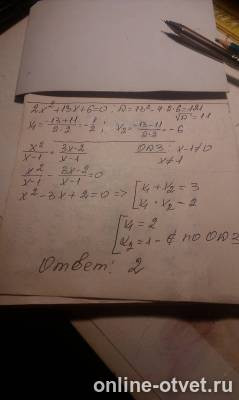 2x²+13x+6=0; D=13²-4·2·6=121
√D=11
x₁=(-13+11)/(2·2)=-1/2; x₂=(-13-11)/(2·2)=-6
x²/(x-1)=(3x-2)/(x-1) ОДЗ: x-1≠0
x≠1
x²/(x-1)-(3x-2)/(x-1)=0
x²-3x+2=0 => [x₁+x₂=3
x₁·x₂=2
[x₁=2
x₂=1-∉ по ОДЗ
Ответ: 2
online-otvet.ru